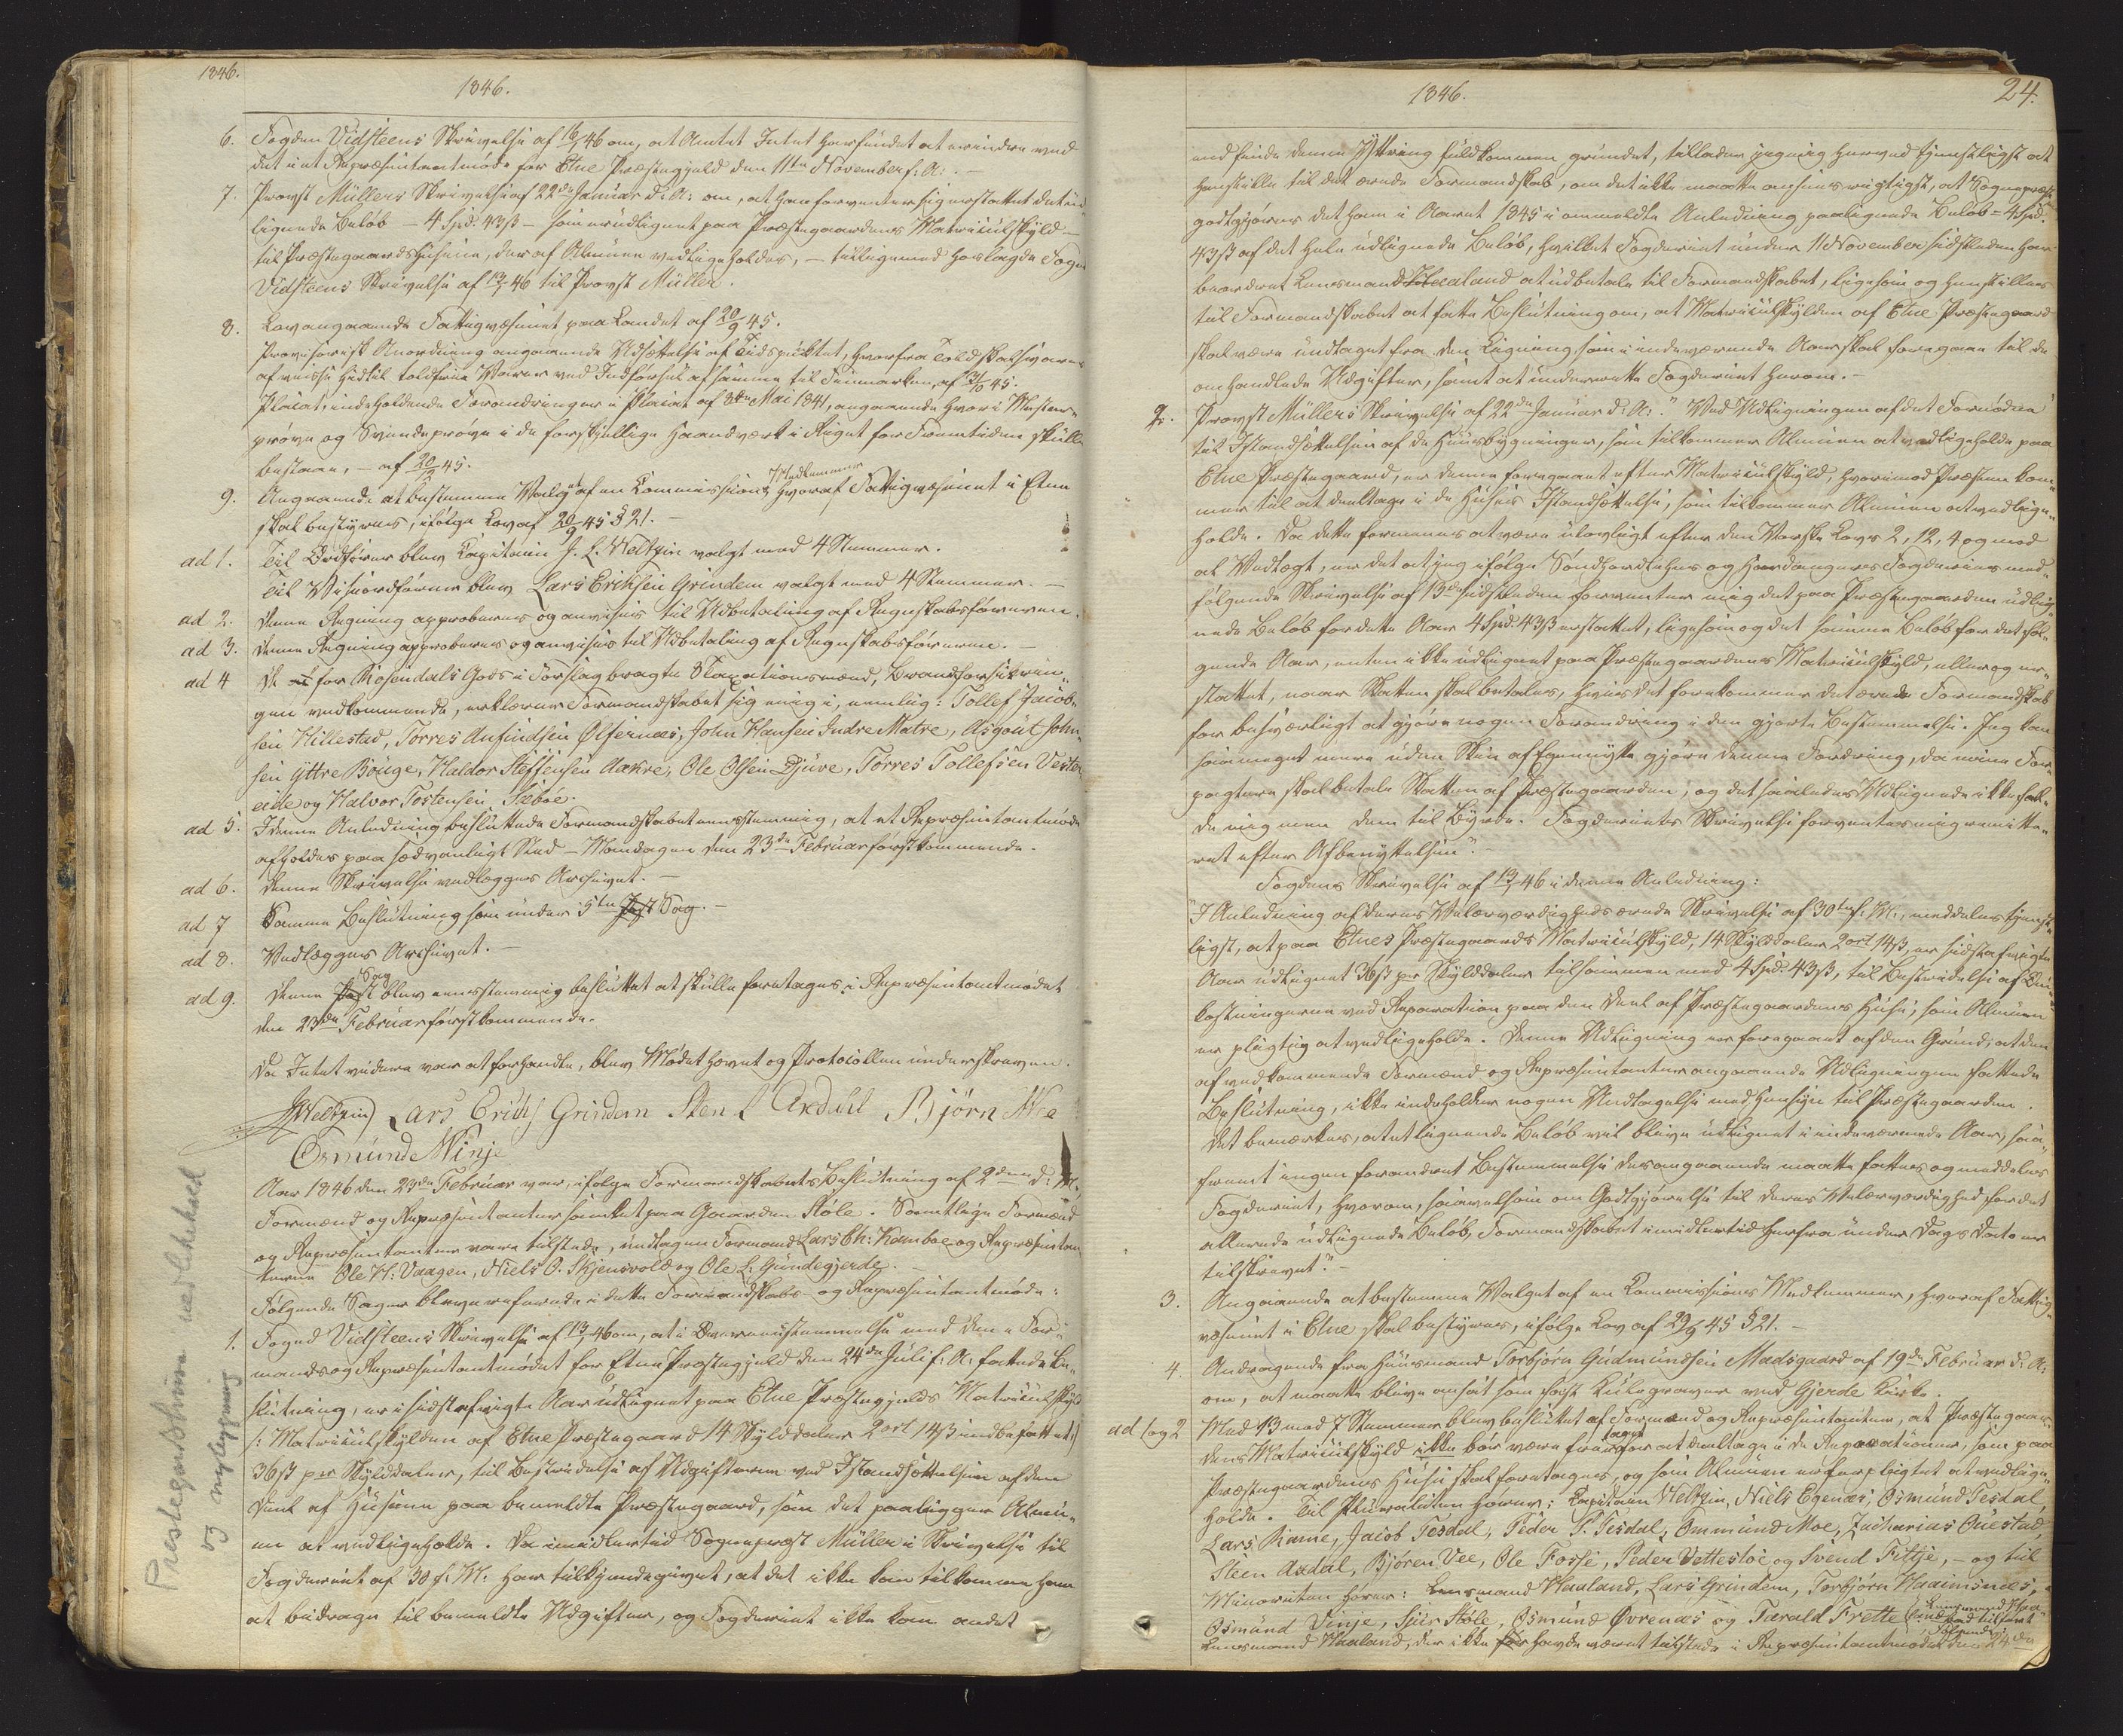 1846.
1846.
6. Fogden Vidsteens Skrivelse af 16/1 46 om, at Amtet Intet har fundet at erindre ved
det i et Repræsentantmøde for Etne Præstegjeld den 11te November f: A:. -
7. Provst Müllers Skrivelse af 22de Januar d: A: om, at han forventer sig erstattet det ud-
lignede Beløb - 4 Spd. 43 ß - som er udlignet paa Præstegaardens Matriculskyld -
til Præstegaardshusene, der af Almuen vedligeholdes, - tilligemed hoslagde Foged
Vidsteens Skrivelse af 13/1 46 til Provst Müller.
8. Lov angaaende Fattigvæsenet paa Landet af 20/9 45.
Provisorisk Anordning angaaende Udsættelse af Tidspunktet, hvorfra Told skal svares
af visse hidtil toldfrie Varer ved Indførsel af samme til Finmarken, af 31/10 45.
Placat, indeholdende Forandringer i Placat af 3die Mai 1841, angaaende hvori Mester-
prøve og Svendeprøve i de forskjellige Haandværk i Riget for Fremtiden skulle
bestaae, - af 20/12 45.
9. Angaaende at bestemme Valget af en Commissions Medlemmer hvoraf Fattigvæsenet i Etne
skal bestyres, ifølge Lov af 20/9 45 § 21. -
ad 1. Til Ordfører blev Capitain J. L. Weltzin valgt med 4 Stemmer.
Til Viceordfører blev Lars Eriksen Grindem valgt med 4 Stemmer. -
ad 2. Denne Regning approberes og anvises til Udbetaling af Regnskabsføreren.
ad 3. Denne Regning approberes og anvises til Udbetaling af Regnskabsføreren. -
ad 4 De af for Rosendals Gods i Forslag bragte 8 Taxationsmænd, Brandforsikrin-
gen vedkommende, erklærer Formandskabet sig enig i, nemlig: Tollef Jacob-
sen Hillestad, Torres Anfindsen Ølfernæs, John Hansen Indre Matre, Asgout John-
sen Yttre Bouge, Haldor Steffensen Aakre, Ole Olsen Djuve, Torres Tollefsen Vester
eide og Halvor Tostensen Sæbøe.
ad 5. I denne Anledning besluttede Formandskabet eensstemmig, at et Repræsentantmøde
afholdes paa sædvanligt Sted - Mandagen den 23de Februar førstkommende.
ad 6. Denne Skrivelse vedlægges Archivet. -
ad 7 Samme Beslutning som under 5te Post Sag. -
ad 8. Vedlægges Archivet. -
ad 9. Denne Post Sag blev eensstemmig besluttet at skulle foretages i Repræsentantmødet
den 23de Februar førstkommende.
Da Intet videre var at forhandle, blev Mødet hævet og Protocollen underskreven.
JWeltzin Lars Erichs Grindem Sten L Axdahl Bjørn Wee
Osmund Winje
Aar 1846 den 23de Februar var, ifølge Formandskabets Beslutning af 2den d: M:,
Formænd og Repræsentanter samlet paa Gaarden Støle. Samtlige Formænd
og Repræsentanter vare tilstede, undtagen Formand Lars Ch: Kamboe og Repræsentan-
terne Ole H: Vaagen, Niels O. Skjensvold og Ole L: Gundegjerde. -
Følgende Sager bleve refererede i dette Formandskabs- og Repræsentantmøde:
1. Foged Vidsteens Skrivelse af 13/1 46 om, at i Overeensstemmelse med den i For-
mands og Repræsentantmødet for Etne Præstegjeld den 24de Juli f: A: fattede Be-
slutning, er i sidstafvigte Aar udlignet paa Etne Præstegjelds Matriculskyld
/: Matriculskylden af Etne Præstegaard 14 Skylddaler 2 ort 14 ß indbefattet :/
36 ß per Skylddaler, til Bestridelse af Udgifterne ved Istandsættelsen af den
Deel af Husene paa bemeldte Præstegaard, som det paaligger Almu-
en at vedligeholde. Da imidlertid Sognepræst Müller i Skrivelse til
Fogderiet af 30 f: M: har tilkjendegivet, at det ikke kan tilkomme ham
at bidrage til bemeldte Udgifter, og Fogderiet ikke kan andet
Prestegardshusa vedlikehald
og nylegging
1846.
24.
end finde denne Yttring fuldkommen grundet, tillader jeg mig herved tjenstligst at
henstille til det ærede Formandskab, om det ikke maatte ansees rigtigst, at Sognepræsten
godtgjøres det ham i Aaret 1845 i ommeldte Anledning paalignede Beløb = 4 Spd.
43 ß af det hele udlignede Beløb, hvilket Fogderiet under 11 November sidstleden har
beordret Lensmand Haaland at udbetale til Formandskabet, ligesom og henstilles
til Formandskabet at fatte Beslutning om, at Matriculskylden af Etne Præstegaard
skal være undtaget fra den Ligning som i indeværende Aar skal foregaae til de
omhandlede Udgifter, samt at underrette Fogderiet herom. -
2. Provst Müllers Skrivelse af 22de Januar d: A: "Ved Udligningen af det Fornødne
til Istandsættelsen af de Huusbygninger, som tilkommer Almuen at vedligeholde paa
Etne Præstegaard, er denne foregaaet efter Matriculskyld, hvorimod Præsten kom-
mer til at deeltage i de Huses Istandsættelse, som tilkommer Almuen at vedlige-
holde. Da dette formenes at være ulovligt efter den Norske Lovs 2, 12, 4 og mod
al Vedtægt, er det at jeg ifølge Søndhordlehns og Hardangers Fogderies med-
følgende Skrivelse af 13de sidstleden forventer mig det paa Præstegaarden udlig-
nede Beløb for dette Aar 4 Spd 43 ß erstattet, ligesom og det samme Beløb for det føl-
gende Aar, enten ikke udlignet paa Præstegaardens Matriculskyld, eller og er-
stattet, naar Skatten skal betales, hvis det forekommer det ærede Formandskab
for besværligt at gjøre nogen Forandring i den gjorte Bestemmelse. Jeg kan
saameget mere uden Skin af Egennytte gjøre denne Fordring, da mine For-
pagtere skal betale Skatten af Præstegaarden, og det saaledes Udlignede ikke fal-
de mig men dem til Byrde. Fogderiets Skrivelse forventes mig remitte-
ret efter Afbenyttelsen." -
Fogdens Skrivelse af 13/1 46 i denne Anledning:
"I Anledning af Deres Velærværdigheds ærede Skrivelse af 30te f: M:, meddeles tjenst-
ligst, at paa Etnes Præstegaards Matriculskyld, 14 Skylddaler 2 ort 14 ß, er sidstafvigte
Aar udlignet 36 ß per Skylddaler tilsammen med 4 Spd. 43 ß, til Bestridelse af Om-
kostningerne ved Reparation paa den Deel af Præstegaardens Huse, som Almuen
er pligtig at vedligeholde. Denne Udligning er foregaaet af den Grund, at den
af vedkommende Formænd og Repræsentanter angaaende Udligningen fattede
Beslutning, ikke indeholder nogen Undtagelse med Hensyn til Præstegaarden.
Det bemærkes, at et lignende Beløb vil blive udlignet i indeværende Aar, saa-
fremt ingen forandret Bestemmelse desangaaende maatte fattes og meddeles
Fogderiet, hvorom, saavelsom om Godtgjørelse til Deres Velærværdighed for det
allerede udlignede Beløb, Formandskabet imidlertid herfra under Dags Dato er
tilskrevet." -
3. Angaaende at bestemme Valget af en Commissions Medlemmer, hvoraf Fattig-
væsenet i Etne skal bestyres, ifølge Lov af 20/9 45 § 21. -
4. Andragende fra Huusmand Torbjørn Gudmundsen Madsgaard af 19de Februar d: A:
om, at maatte blive ansat som fast Kulegraver ved Gjerde Kirke.
ad 1 og 2 Med 13 mod 7 Stemmer blev besluttet af Formænd og Repræsentanter, at Præstegaar-
dens Matriculskyld ikke bør være fritagen for at deeltage i de Reparationer, som paa
Præstegaardens Huse skal foretages, og som Almuen er forpligtet at vedlige-
holde. Til Pluraliteten hører: Capitain Weltzin, Niels Egenæs, Osmund Tesdal,
Lars Rame, Jacob Tesdal, Peder P. Tesdal, Ommund Moe, Zacharias Ouestad,
Steen Axdal, Bjøren Vee, Ole Fosse, Peder Vettestøe og Svend Fittje, - og til
Minoriteten hører: Lensmand Haaland, Lars Grindem, Torbjørn Haaimsnæs,
Osmund Vinje, Siur Støle, Osmund Øvrenæs og Tarald Frette
Lensmand Haaland, der ikke før havde været tilstede i Repræsentantmødet den 24de